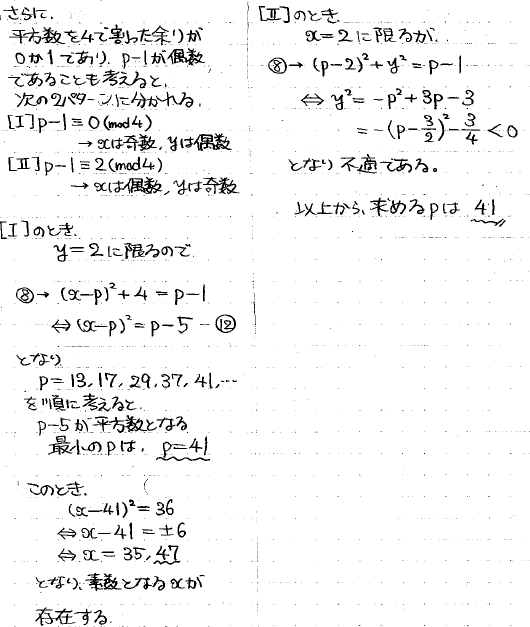 さらに、
平方数を4で割った余りが
0か1であり、p-1が偶数
であることも考えると、
次の2パターンに分かれる。
[Ⅰ] p-1≡0(mod4)
→ xは奇数, yは偶数
[Ⅱ] p-1≡2(mod4)
→ xは偶数, yは奇数
[Ⅰ]のとき
y=2に限るので
⑧→ (x-p)²+4=p-1
⇔(x-p)²=p-5 …⑫
となり
p=13,17,29,37,41,…
を順に考えると、
p-5が平方数となる
最小のpは、p=41
このとき、
(x-41)²=36
⇔x-41=±6
⇔x=35,47
となり、素数となるxが
存在する。
[Ⅱ]のとき
x=2に限るが、
⑧→(p-2)²+y²=p-1
⇔ y²=-p²+3p-3
=-(p-3/2)²-3/4<0
となり不適である。
以上から、求めるpは 41